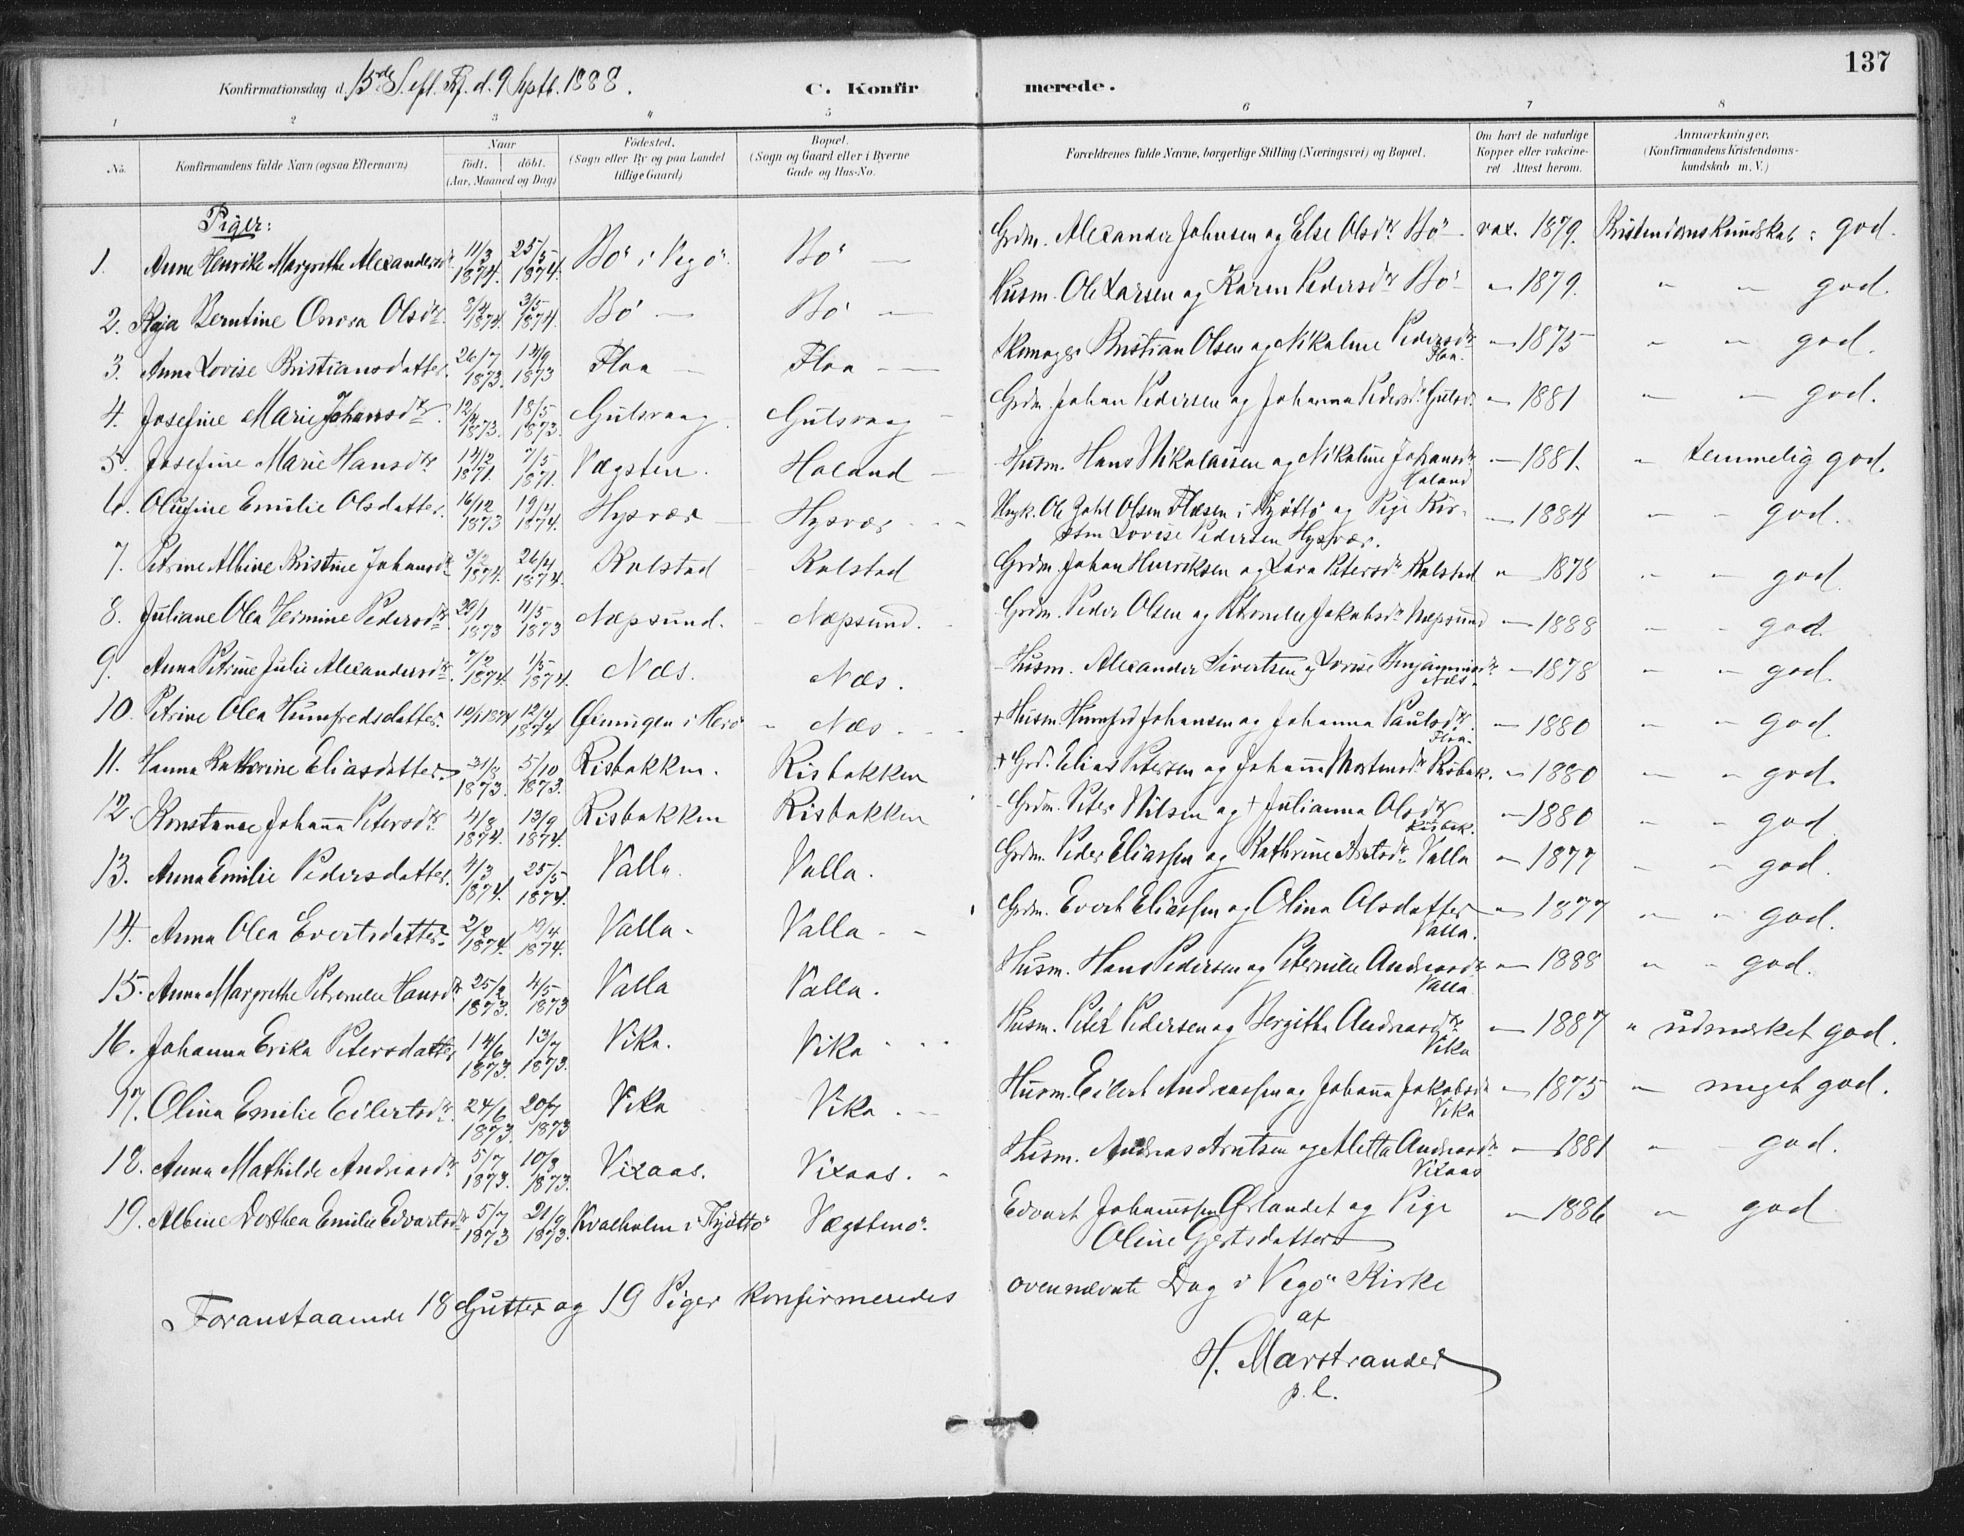 137
Konfirmationsdag d. 15de S. efl. Tr. d. 9 Septb. 1888.
C. Konfirmerede.
1 2 3 4 5 6 7 8
No. Konfirmandens fulde Navn (ogsaa Efternavn) Naar født, døbt. (Aar, Maaned og Dag) Fødested. (Sogn eller By og paa Landet tillige Gaard) Bopæl. (Sogn og Gaard eller i Byerne Gade og Hus-No. Forældrenes fulde Navne, borgerlige Stilling (Næringsvei) og Bopæl. Om havt de naturlige Kopper eller vakcineret Attest herom. Anmærkninger. (Konfirmandens Kristendomskundskab m. V.)
Piger:
1. Anne Henrike Margrethe Alexandersdr 11/3 1874. 25/5 1874. Bø i Vegø Bø — Grdm. Alexander Johnsen og Else Olsdr Bø — vax. 1879. Kristendomskundskab: god.
2. Kaja Berntine Onora Olsdr 8/2 1874. 3/5 1874. Bø — Bø — Husm. Ole Larsen og Karen Pedersdr Bø — " 1879. " " god.
3. Anna Lovise Kristiansdatter. 26/7 1873. 13/9 1873 Floa — Floa — Skomager Kristian Olsen og Nikoline Pedersdr Floa. " 1875 " " god.
4. Josefine Marie Johansdr 12/4 1873. 18/5 1873. Gulsvaag Gulsvaag — Grdm. Johan Pedersen og Johanna Pedersdr Gulsv. " 1881 " " god.
5. Josefine Marie Hansdr 13/2 1871. 7/5 1871. Vægsten. Holand — Husm. Hans Nikolaisen og Nikoline Johansdr Holand — 1881. " temmelig god.
6. Olufine Emilie Olsdatter. 16/12 1873 19/4 1874. Hysvær Hysvær — Ungk. Ole Zahl Olsen Flæsen i Tjøttø og Pige Kirsten Lovise Pedersen Hysvær. — 1884 " " god.
7. Petrine Albine Kristine Johansdr 3/2 1874. 26/4 1874. Rolstad — Rolstad Grdm. Johan Henriksen og Lara Petersdr Rolstad " 1878 " " god.
8. Juliane Olea Hermine Pedersdr 29/1 1873 4/5 1873 Næpsund. — Næpsund. Grdm. Peder Olsen og Petronelle Jakobsdr Næpsund — 1888 " " god.
9. Anna Petrine Julie Alexandersdr 7/2 1874. 1/5 1874. Næs. Næs. Husm. Alexander Sivertsen og Lovise Benjaminsdr Næs — 1878 " " god.
10. Petrine Olea Humfredsdatter. 10/1 1874 12/4 1874 Øiningen i Herø Næs. + Husm. Humfred Johansen og Johanna Paulsdr Floa. — 1880 " " god.
11. Hanna Kathrine Eliasdatter 31/8 1873. 5/10 1873. Risbakken. Risbakken + Grd. Elias Petersen og Johanna Mortensdr Risbak. " 1880 " " god.
12. Konstanse Johanna Petersdr. 4/8 1874. 13/9 1874. Risbakken Risbakken Grdm. Peter Nilsen og + Julianna Olsdr Risbak. — 1880 " " god
13. Anna Emilie Pedersdatter. 4/3 1874. 25/5 1874. Valla. Valla. Grdm. Peder Eliassen og Kathrine Arntsdr Valla " 1877 " " god.
14. Anna Olea Evertsdatter. 2/2 1874. 19/4 1874. Valla. Valla — Grdm. Evert Eliassen og Olina Olsdatter Valla. " 1877 " " god.
15. Anna Margrethe Petronelle Hansdr 25/2 1873. 4/5 1873 Valla Valla. Husm. Hans Pedersen og Petronelle Andreasdr Valla " 1888 " " god.
16. Johanna Erika Petersdatter 14/6 1873. 13/7 1873. Vika. Vika Husm. Peter Pedersen og Bergitha Andreasdr Vika — 1887 " udmerket god.
17. Olina Emilie Eilertsdr. 24/6 1873. 20/7 1873 Vika Vika. — Husm. Eilert Andreassen og Johanna Jakobsdr Vika " 1875 — meget god.
18. Anna Mathilde Andreasdr. 5/7 1873. 10/8 1873. Vixaas. Vixaas. Husm. Andreas Arntsen og Metta Andreasdr Vixaas — 1881 " god.
19. Albine Dorthea Emilie Edvartsdr 5/7 1873 21/9 1873. Kvalholm i Tjøttø Vægstenø. Edvart Johannssen Ørlandet og Pige Oline Gjertsdatter " 1886 " god
Foranstaaende 18 Gutter og 19 Piger konfirmeredes ovennævnte Dag i Vegø Kirke
af
H. Marstrander
p. l.